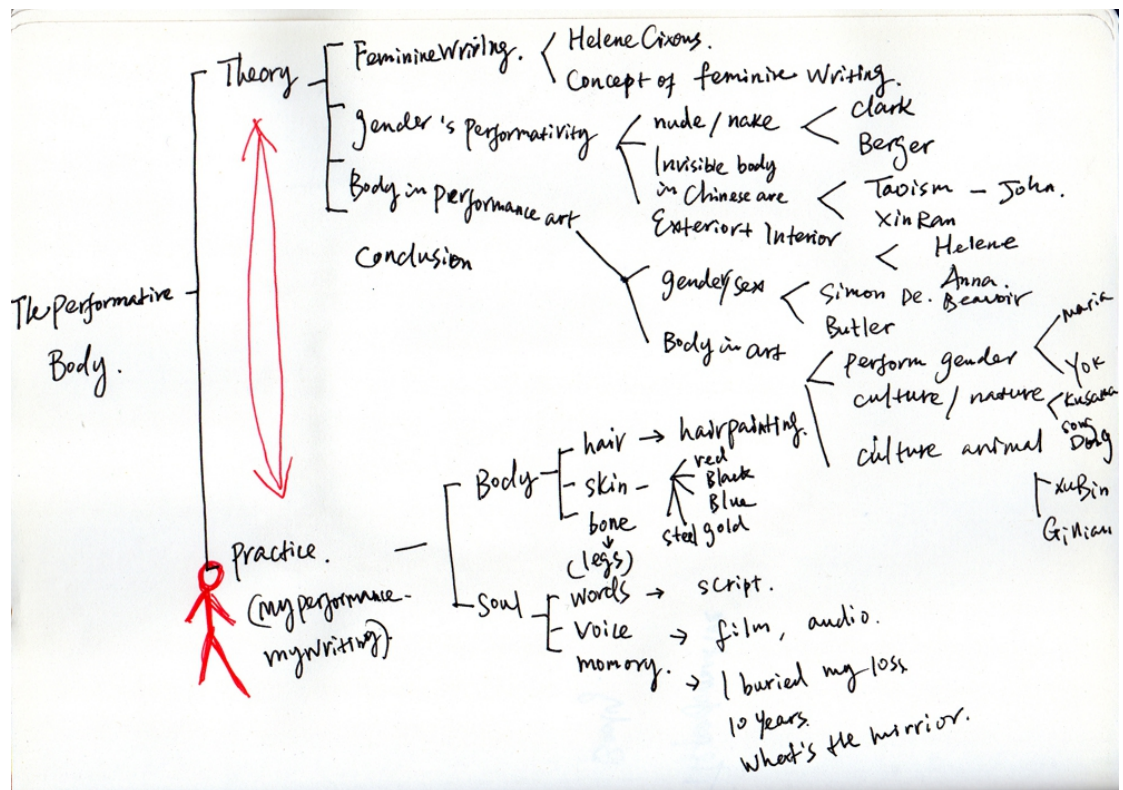 The performative
Body.
Theory
Feminine Writing.
Helene Cixous.
Concept of feminine Writing.
gender's performativity
nude / nake
Clark
Berger
Invisible body
in Chinese are
Taoism - John.
XinRan
Exterior + Interior
Helene
Anna.
Body in performance art
gender/sex
Simon De. Beavoir
Butler
Body in art
perform gender
maria
Yok
culture / nature
Kusama
song
Dong
culture animal
xuBin
Gillian
Conclusion
Practice.
(my performance -
my writing).
Body
hair → hairpainting.
skin -
red
Black
Blue
gold
steel
bone
(legs)
Soul
words → script.
voice → film, audio.
momory. → I buried my loss
10 years.
What's the mirrior.